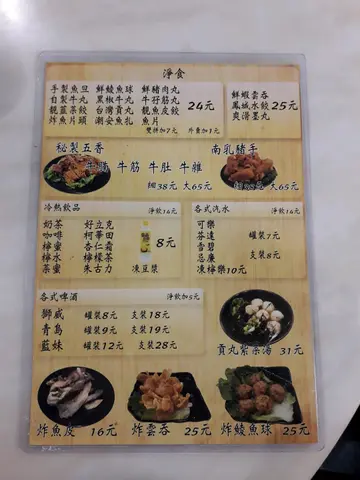 淨食
手製魚豆 鮮鯪魚球 鮮豬肉丸
自製牛丸 黑椒牛丸 牛孖筋丸
靚韮菜餃 台灣貢丸 靚魚皮餃
炸魚片頭 潮安魚扎 魚片
24元
雙拼加7元 外賣加1元
鮮蝦雲吞
鳳城水餃
爽滑墨丸
25元
秘製五香
牛腩 牛筋 牛肚 牛雜
細38元 大65元
南乳豬手
細38元 大65元
冷熱飲品 淨飲14元
奶茶 好立克
咖啡 柯華田
檸蜜 杏仁霜
檸水 檸檬茶
茶蜜 朱古力
8元
凍豆漿
各式汽水 淨飲14元
可樂
芬達
雪碧
忌廉
罐裝7元
支裝8元
凍檸樂10元
各式啤酒 淨飲加5元
獅威 罐裝8元 支裝18元
青島 罐裝9元 支裝19元
藍妹 罐裝12元 支裝28元
貢丸紫菜湯 31元
炸魚皮 16元
炸雲吞 25元
炸鯪魚球 25元